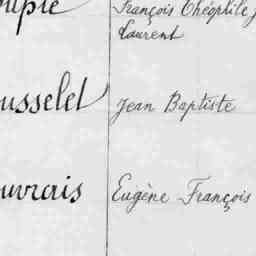 François Théophile J
Laurent
usselet Jean Baptiste
uvreris Eugène François